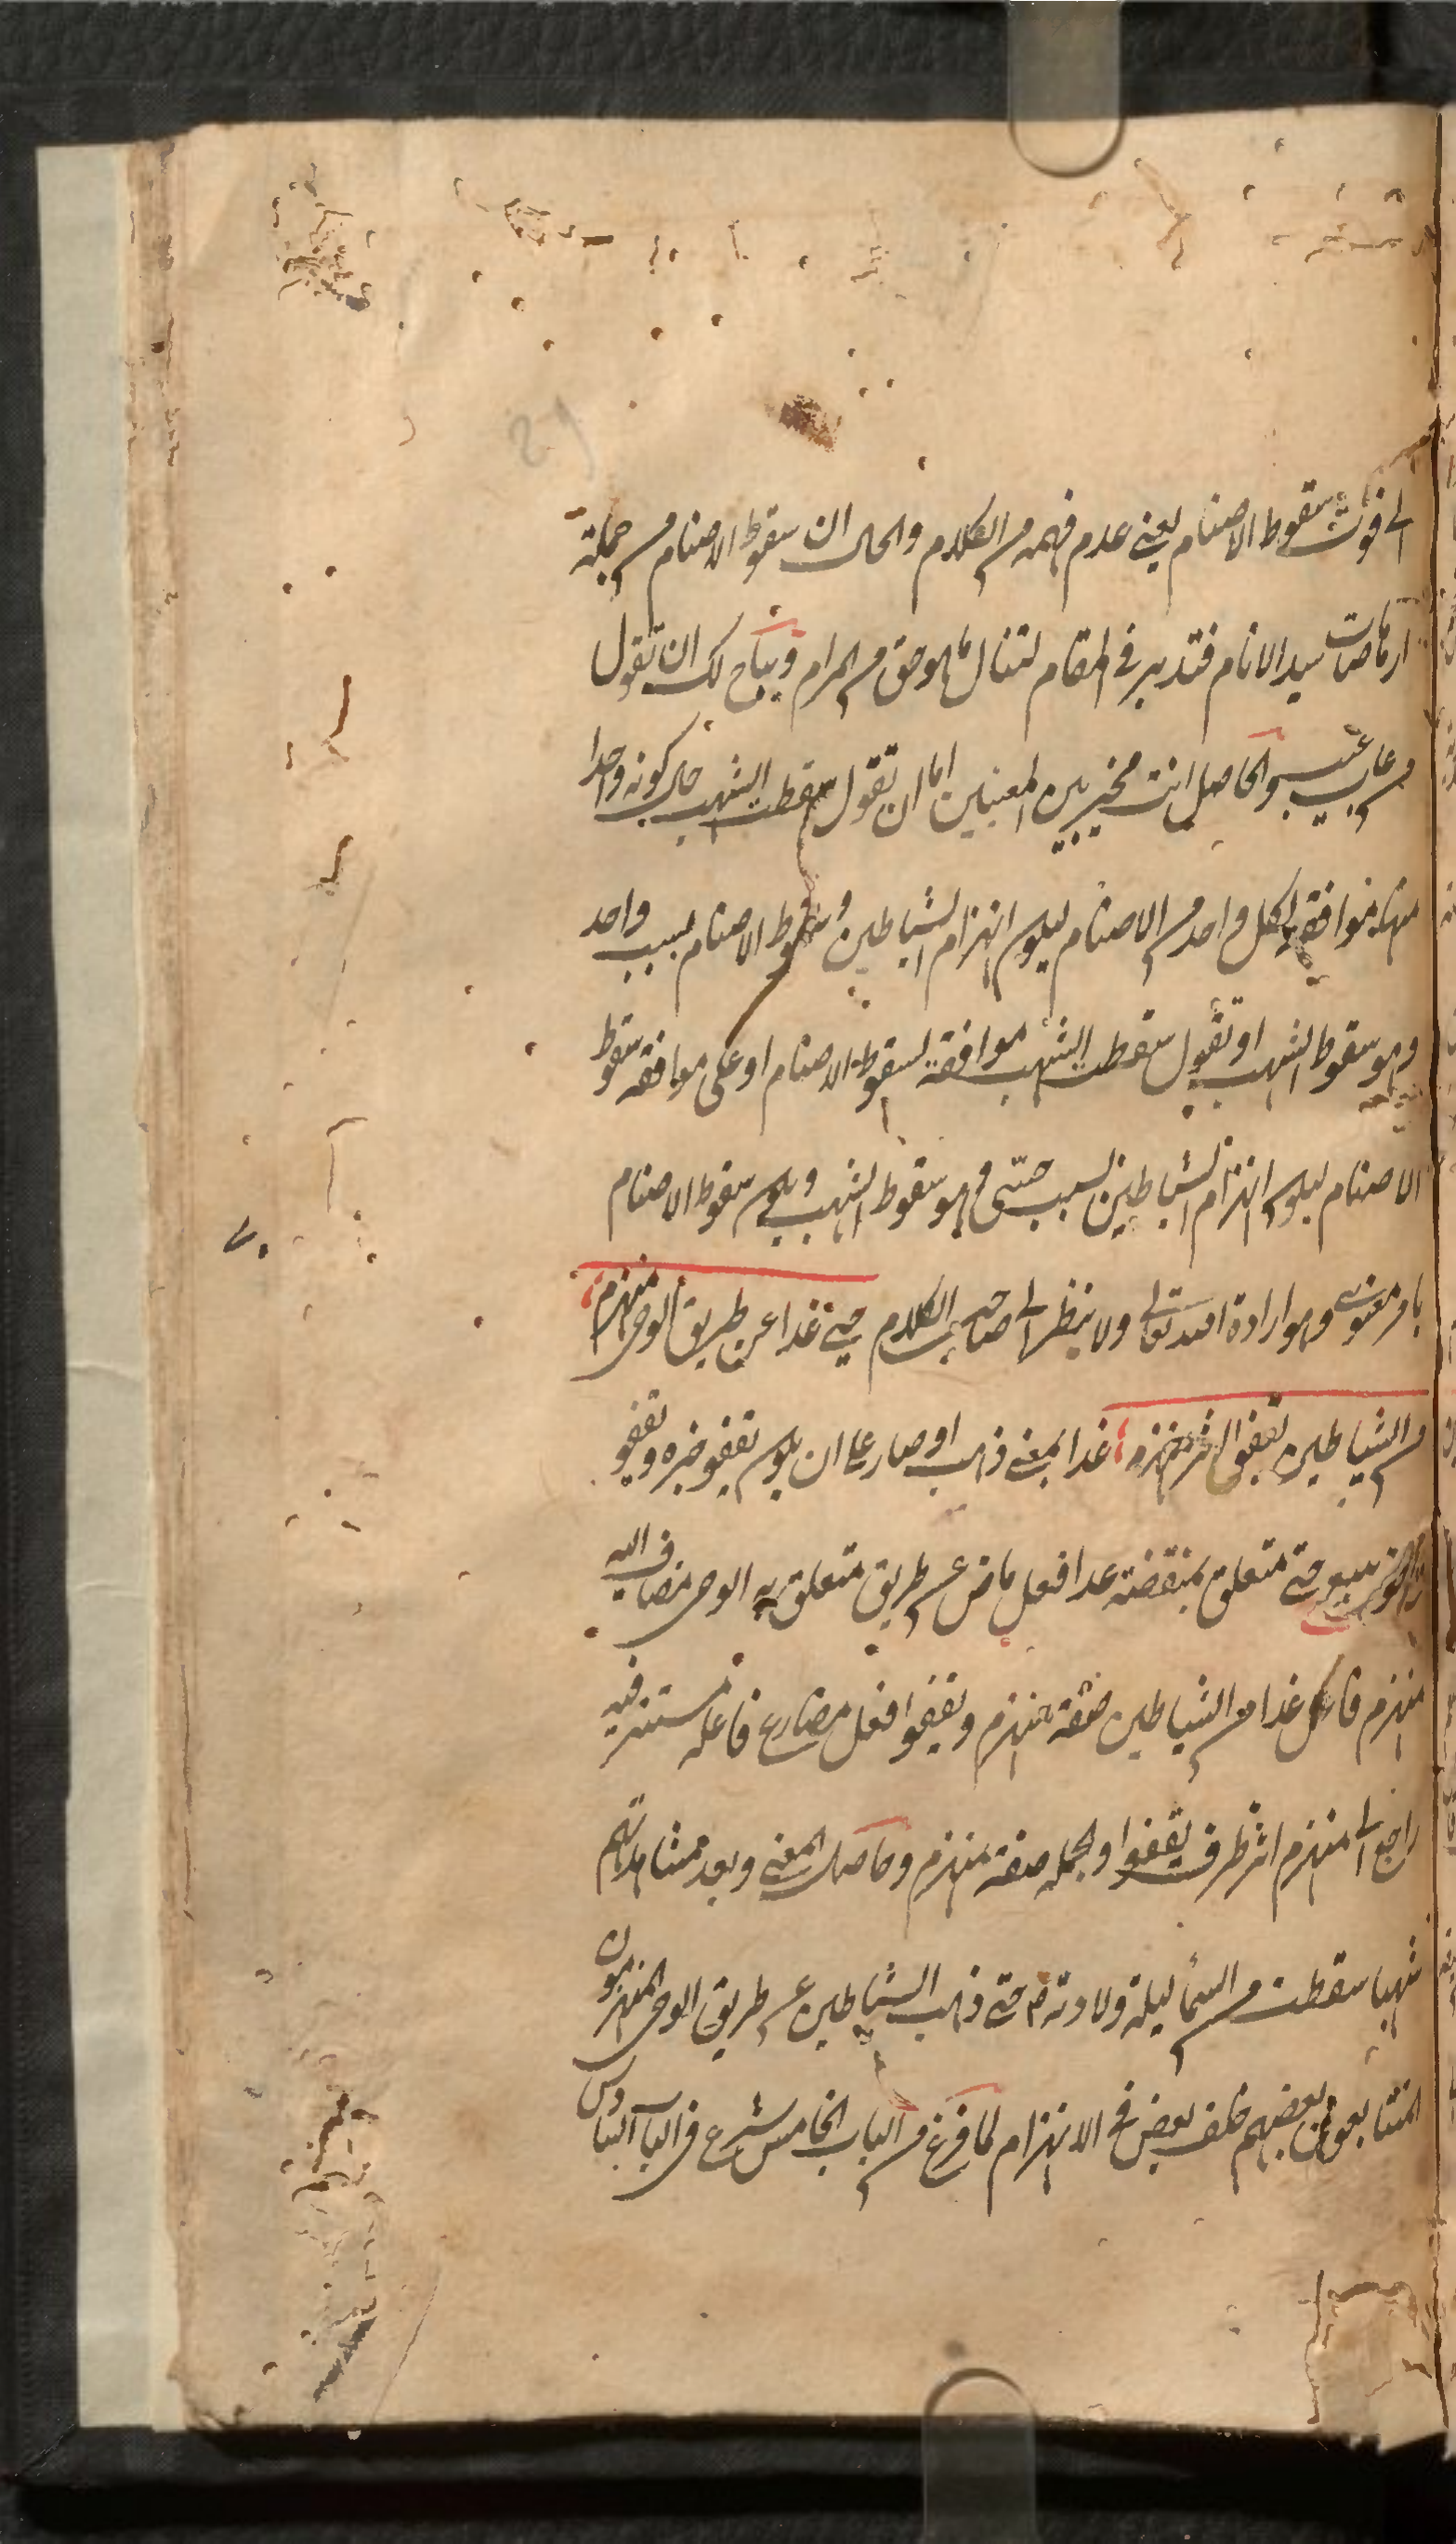 الى فوت سقوط الاصنام يعنى عدم فهمه من الكلام والحال ان سقوط الاصنام من جملة
ارهاصات سيد الانام فتدبر فى المقام لتنال ما هو حق من المرام ويباح لك ان تقول
من عاب عيب والحاصل انت مخير بين المعنيين اما ان تقول سقطت الشهب حال كونه واحدا
منها موافقة لكل واحد من الاصنام ليكون انهزام الشياطين وسقوط الاصنام بسبب واحد
وهو سقوط الشهب او تقول سقطت الشهب موافقة لسقوط الاصنام او على موافقه سقوط
الاصنام ليكون انهزام الشياطين بسبب حسّى وهو سقوط الشهب ويكون سقوط الاصنام
بامر معنوى وهو ارادة الله تعالى ولا ينظر الى صاحب الكلام حتى غدا عن طريق الوحى منهزم
من الشياطين يقفوا اثر منهزم غدا بمعنى ذهب او صار على ان يكون يقفو خبره ويقفو
حتى متعلق بمنقضة غدا فعل ماض عن طريق متعلق به الوحى مضاف اليه
منهزم فاعل غدا من الشياطين صفة منهزم ويقفوا فعل مضارع فاعله مستتر فيه
راجع الى منهزم اثر ظرف يقفوا والجملة صفة منهزم وحاصل المعنى وبعد مشاهدتهم
شهبا سقطت من السماء ليلة ولادته م حتى ذهب الشياطين عن طريق الوحى المنهزمون
المتتابعون بعضهم خلف بعض فى الانهزام لما فرغ من الباب الخامس شرع فى الباب السادس